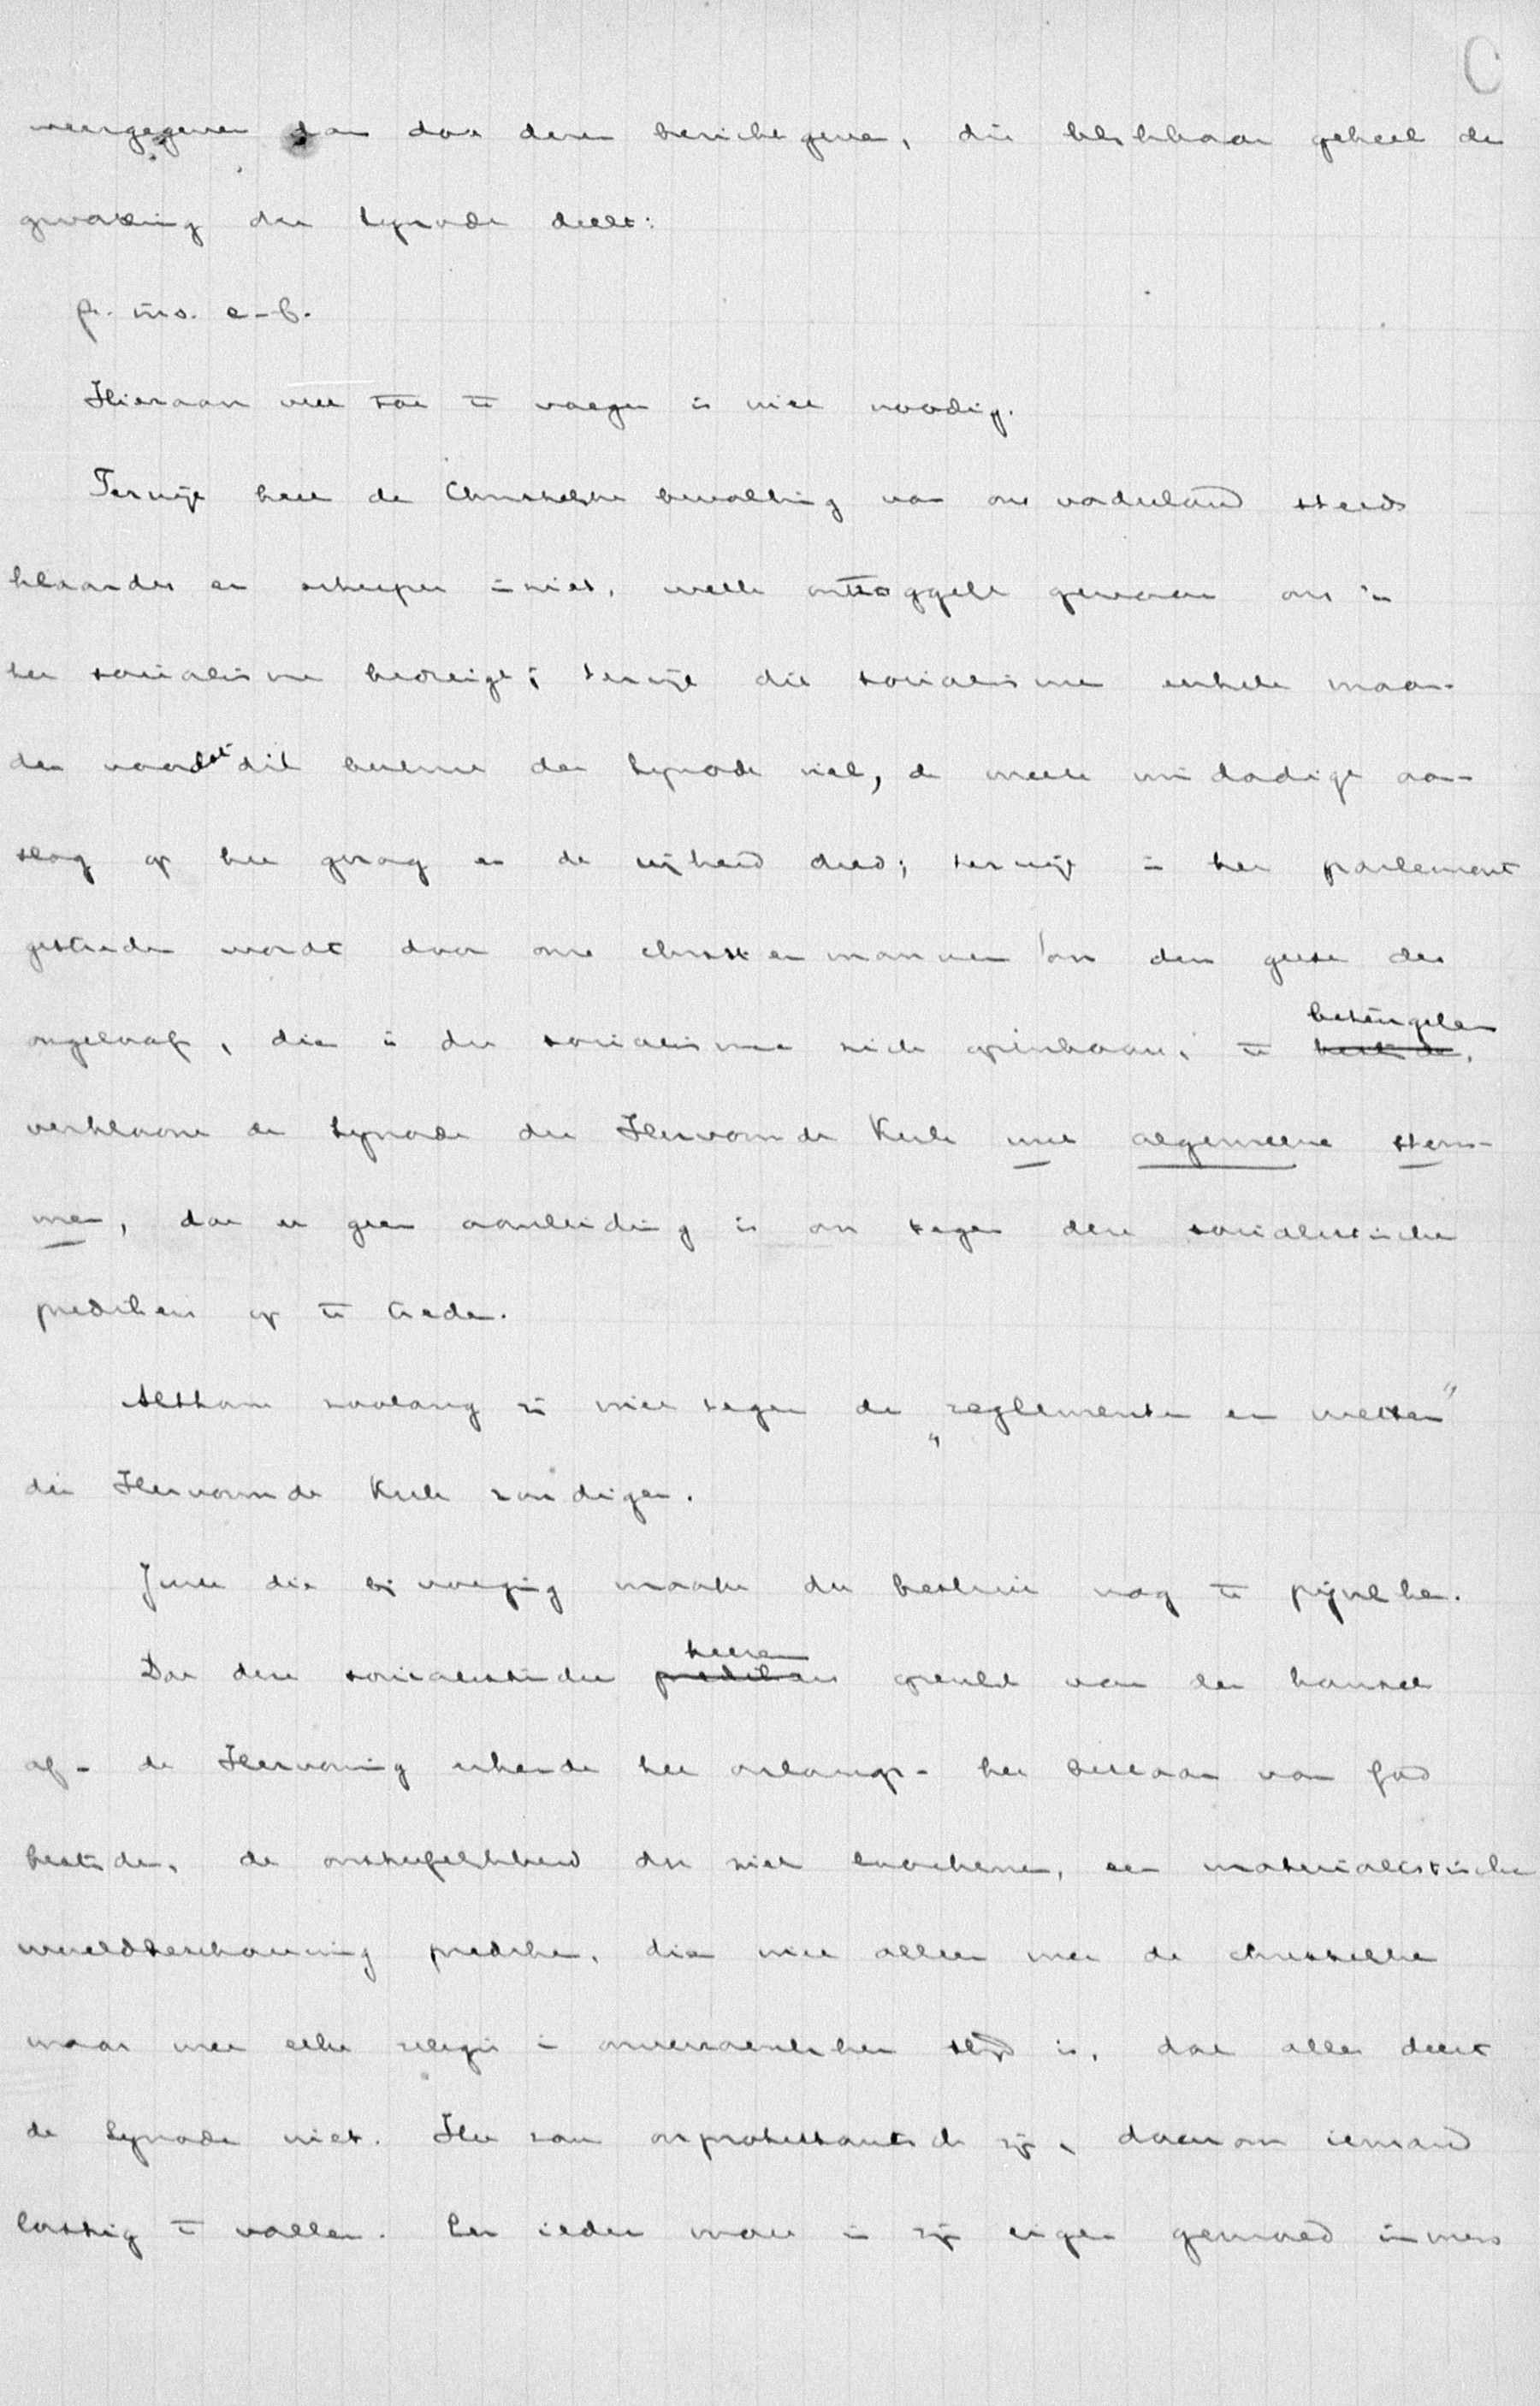 C
weergegeven dan door dezen berichtgever, die blijkbaar geheel de
zienswijze der Synode deelt:
p. ms. a-b.
Hieraan veel toe te voegen is niet noodig.
Terwijl heel de Christelijke bevolking van ons vaderland steeds
klaarder en scherper inziet, welk ontzaggelijk gevaar ons in
het socialisme bedreigt; terwijl dit socialisme enkele maan-
den voordat dit besluit der Synode viel, de meest misdadige aan-
slag op het gezag en de vrijheid deed; terwijl in het parlement
gestreden wordt door onze christen mannen om den geest des
ongeloofs, die in dit socialisme zich openbaart, te beteugelen,
verklaart de Synode der Hervormde Kerk met algemeene stem-
men, dat er geen aanleiding is om tegen deze socialistische
predikers op te treden.
Althans zoolang zij niet tegen de „reglementen en wetten”
der Hervormde Kerk zondigen.
Juist die bijvoeging maakt dit besluit nog te pijnlijker.
Dat deze socialistische heeren openlijk van den kansel
af - de Hervorming erkende het onlangs - het bestaan van God
bestrijden, de onsterfelijkheid der ziel loochenen, een materialistische
wereldbeschouwing prediken, die niet alleen met de christelijke
maar met elke religie in onverzoenlijken strijd is, dat alles deert
de Synode niet. Het zou onprotestantsch zijn, daarom iemand
lastig te vallen. Een ieder moet in zijn eigen gemoed immers